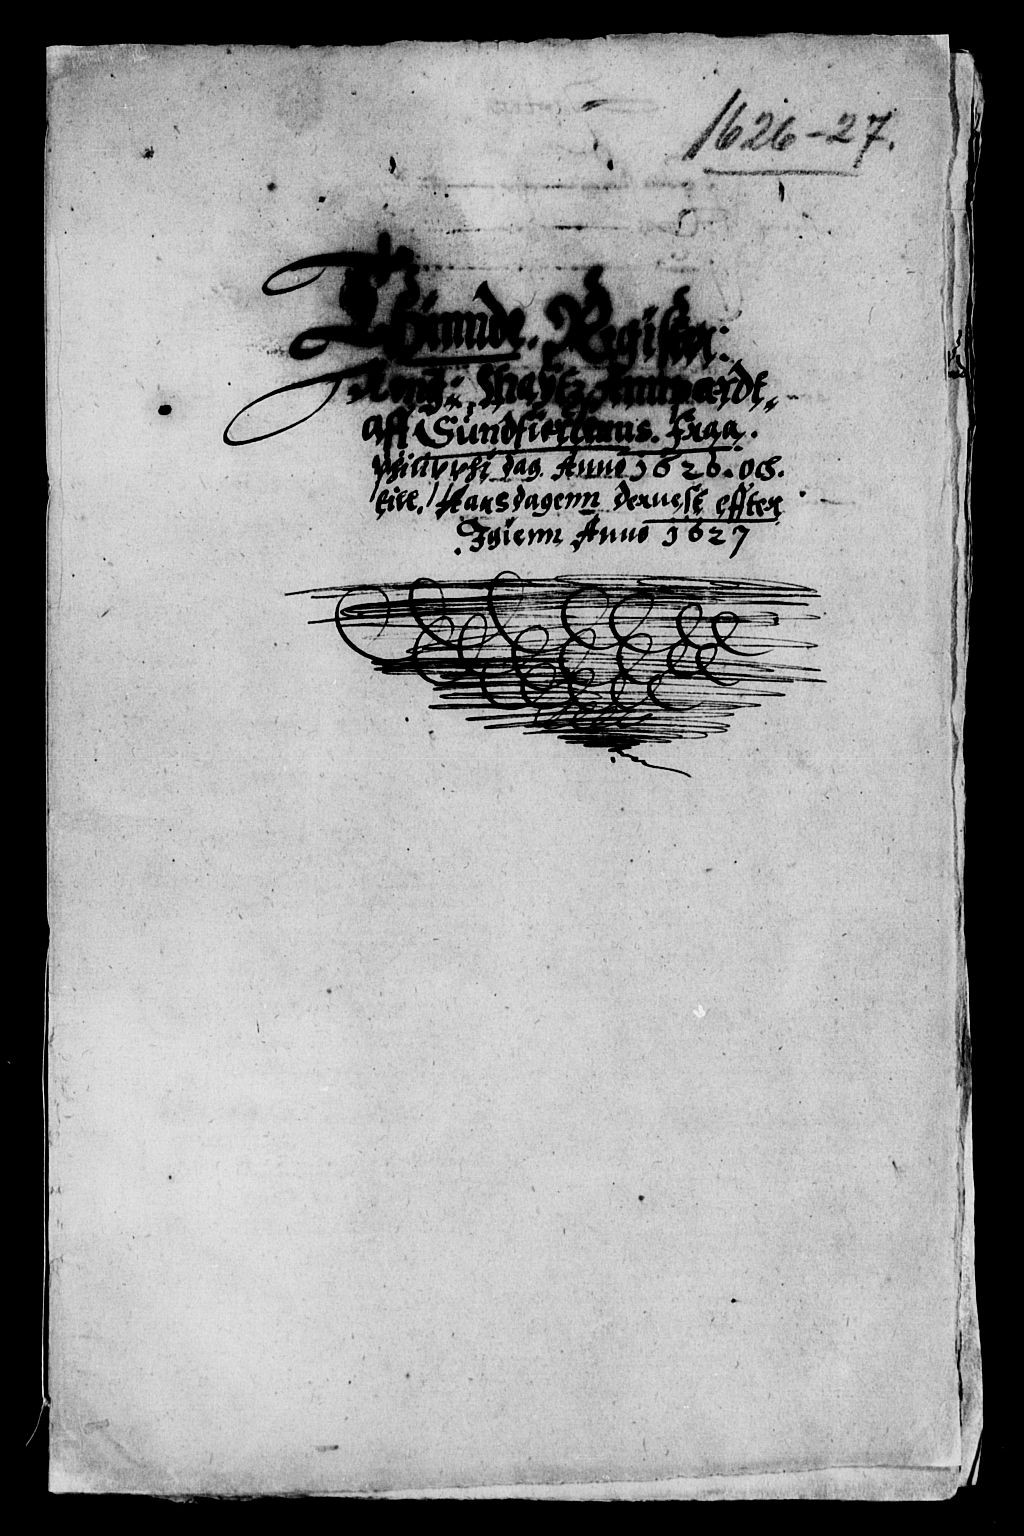 1626-27.
Thiinnde. Register.
Kong: Maytz Annpardt,
aff Sundfierlenns. Fra.
Philippi dag Anno 1626. och.
till. Aarsdagenn dernest effter
Igienn Anno 1627